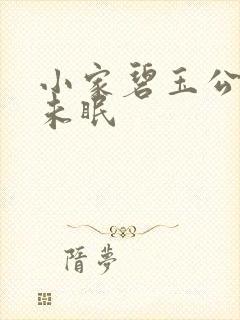 小家碧玉公
未眠
隋夢